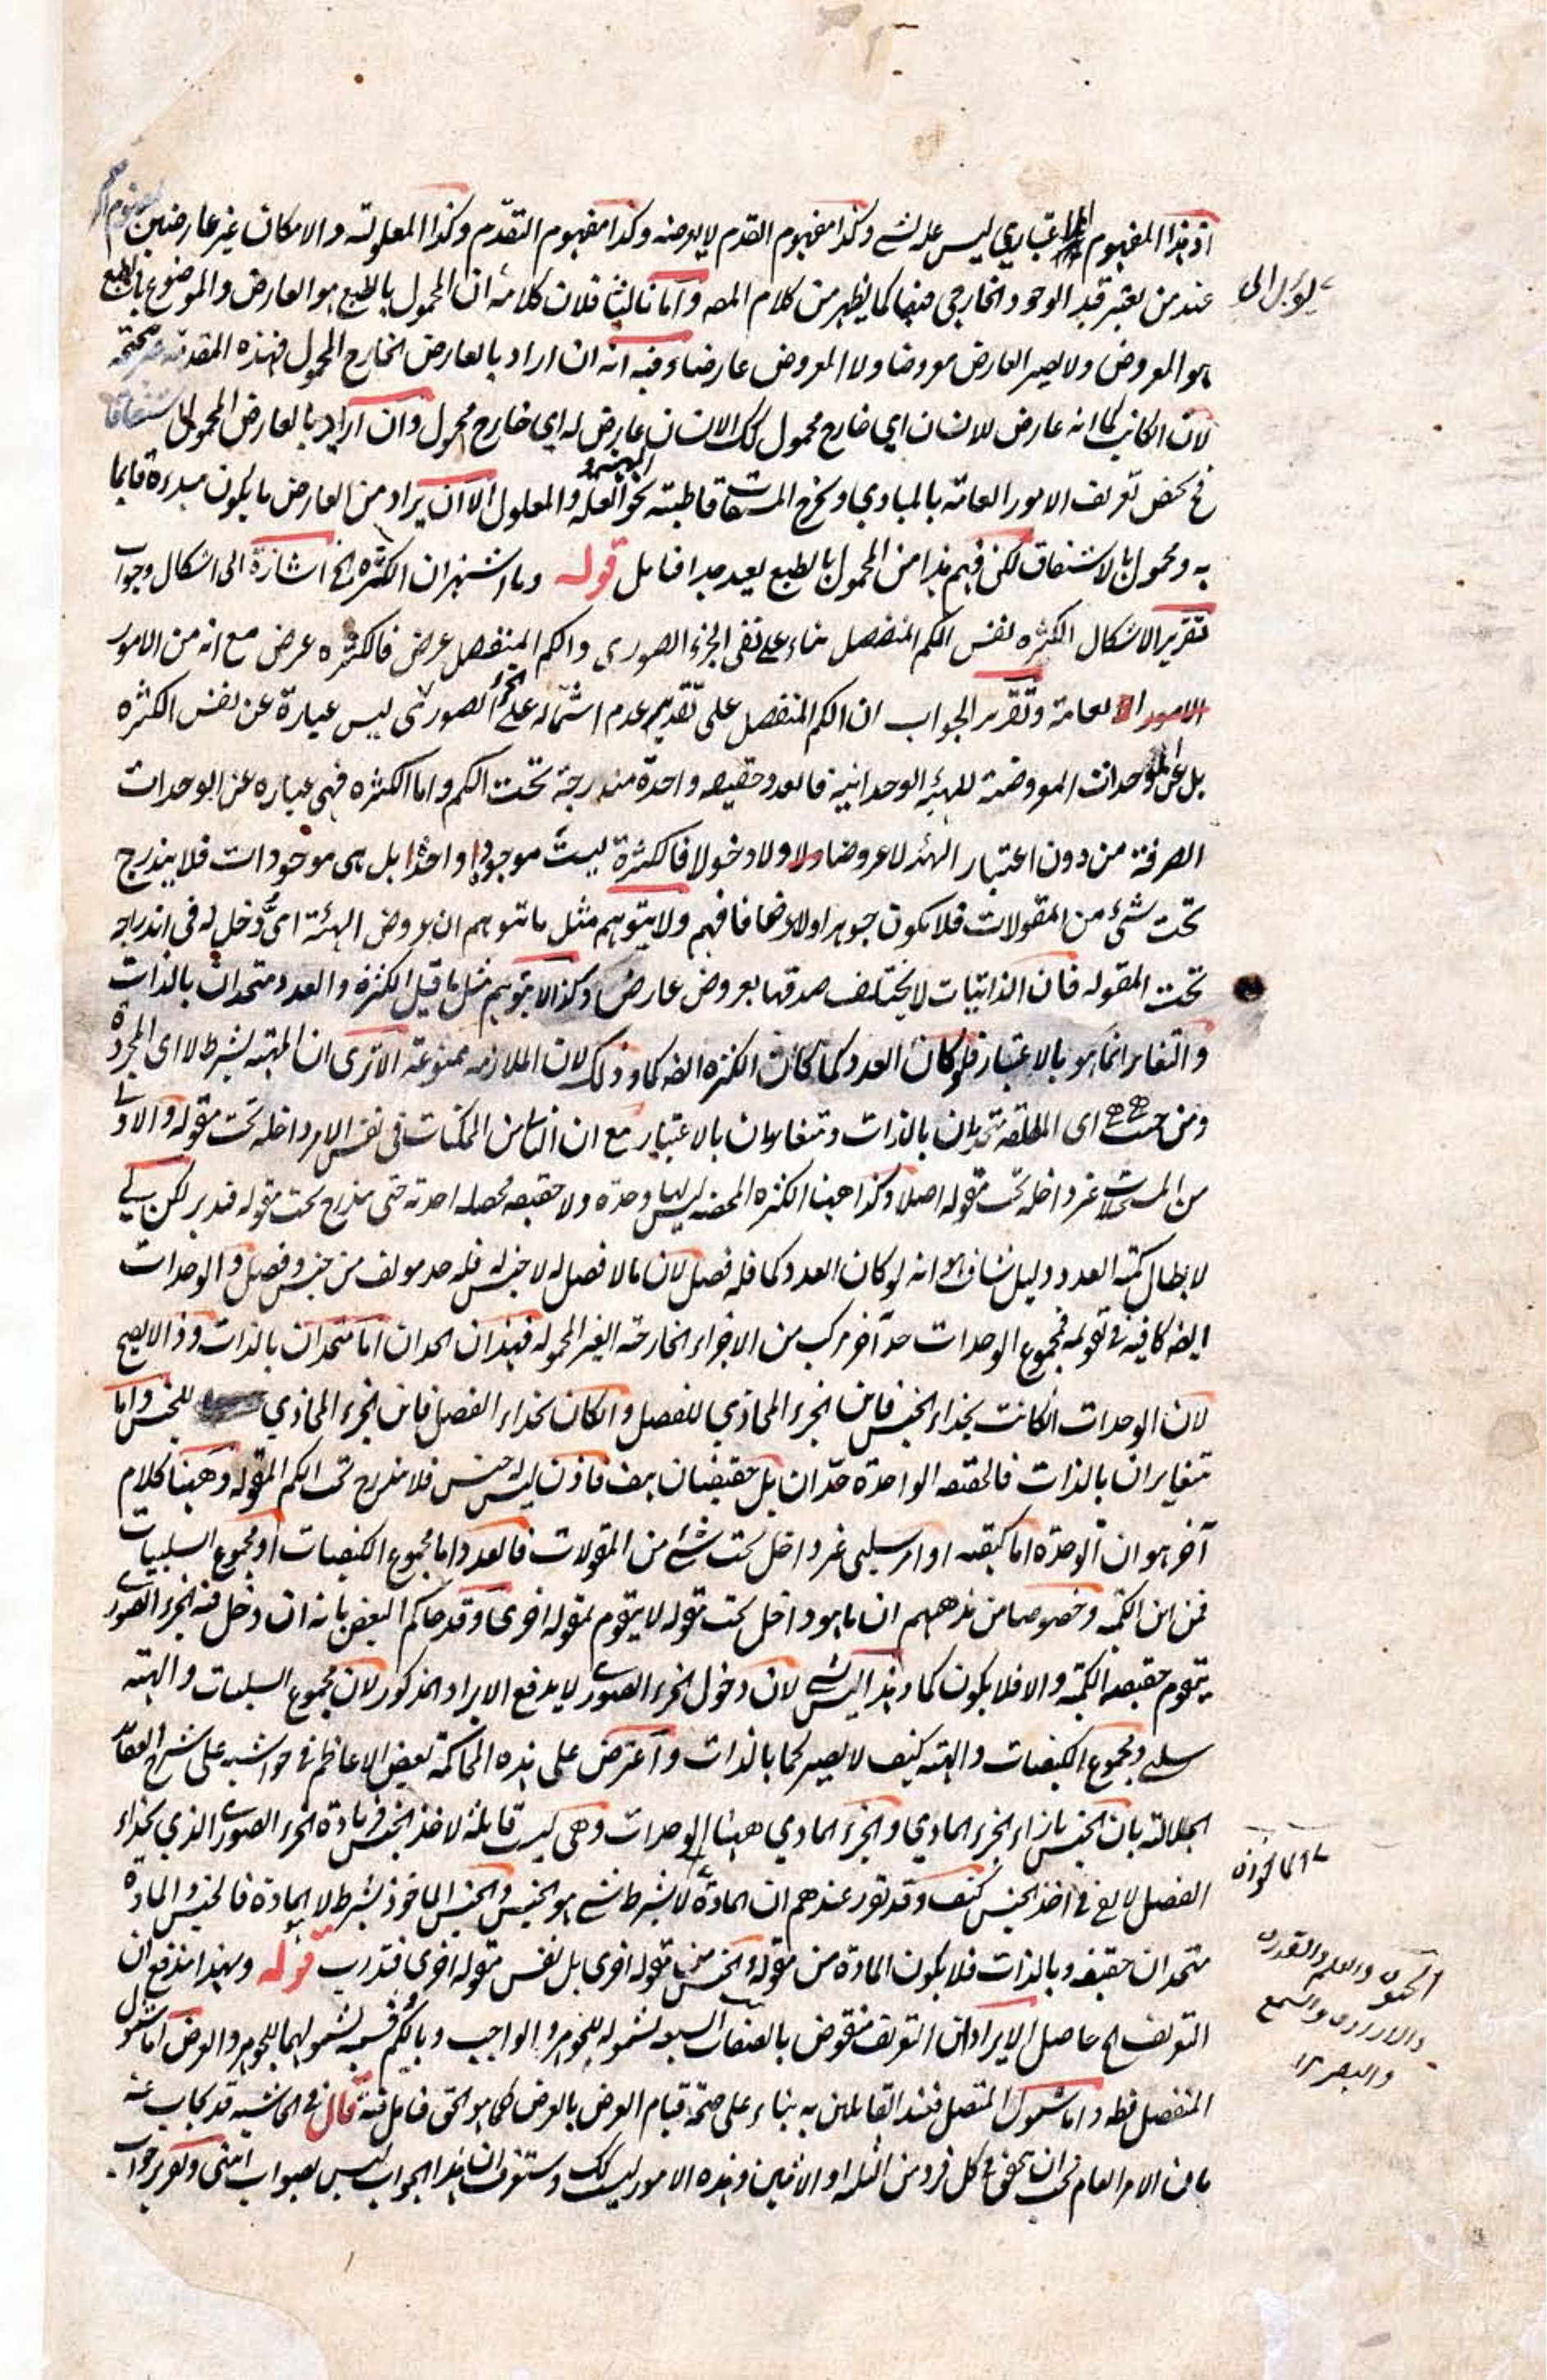 اذ هذا المفهوم اعتباري ليس علة لشئ وكذا مفهوم القدم لا يعرضه وكذا مفهوم التقدم وكذا المعلولية والامكان غير عارضين
عند من يعتبر قيد الوجود الخارجي فيها كما يظهر من كلام المصـ واما ثالثا فلان كلامه ان المحمول بالطبع هو العارض والموضوع بالطبع
هو المعروض ولا يصير العارض معروضا ولا المعروض عارضا وفيه انه ان اراد بالعارض الخارج المحمول فهذه المقدمة غير صحيحة
لان الكاتب كما انه عارض للانسان اي خارج محمول كك الانسان عارض له اي خارج محمول وان اراد بالعارض المحمول اشتقاقا
فح يختص تعريف الامور العامة بالمبادي ويخرج المشتقات قاطبة نحو العلة والمعلول الا ان يراد من العارض ما يكون مبدءه قايما
به ومحمول بالاشتقاق لكن فهم هذا من المحمول بالطبع بعيد جدا فتامل قوله وما اشتهر ان الكثرة الخ اشارة الى اشكال وجواب
تقرير الاشكال الكثرة نفس الكم المنفصل بناء على نفى الجزء الصورى والكم المنفصل عرض فالكثره عرض مع انه من الامور
الامور العامة وتقرير الجواب ان الكم المنفصل على تقدير عدم اشتماله على الجزء الصوري ليس عبارة عن نفس الكثره
بل عن الوحدات المعروضة للهيئة الوحدانية فالعدد حقيقة واحدة مندرجة تحت الكم واما الكثره فهى عباره عن الوحدات
الصرفة من دون اعتبار الهيئة لا عروضا ولا دخولا فالكثرة ليست موجودا واحدا بل هى موجودات فلا يندرج
تحت شئ من المقولات فلا يكون جوهرا ولا عرضا فافهم ولا يتوهم مثل ما يتوهم ان عروض الهيئة اىّ دخل له فى اندراجه
تحت المقوله فان الذاتيات لا يختلف صدقها بعروض عارض وكذا لا يتوهم مثل ما قيل الكثرة والعدد متحدان بالذات
والتغاير انما هو بالاعتبار فلو كان العدد كما كانت الكثره ايضه كما وذلك لان الملازمه ممنوعة الا ترى ان المهية بشرط لا اى المجردة
ومن حيث هى هى اى المطلقه متحدان بالذات ومتغايران بالاعتبار مع ان الثانية من الممكنات فى نفس الامر داخله تحت مقوله والاولى
من المستحيلات غير داخله تحت مقوله اصلا وكذا ههنا الكثره المحضه ليس لها وحده ولا حقيقه محصله احدية حتى يندرج تحت مقوله فتدبر لكن بقى
لابطال كمية العدد دليل شاف هو انه لو كان العدد كما فله فصل لان ما لا فصل له لا جنس له فله حد مولف من جنس وفصل والوحدات
ايضه كافيه فى تقومه فمجموع الوحدات حد آخر مركب من الاجزاء الخارجة الغير المحموله فهذان الحدان اما متحدان بالذات وذا لا يصح
لان الوحدات انكانت بحذاء الجنس فاين الجزء المحاذي للفصل وانكان بحذاء الفصل فاين الجزء المحاذي للجنس واما
متغايران بالذات فللحقيقه الواحده حدان بل حقيقتان هف فاذن ليس له جنس فلا يندرج تحت الكم المقوله وههنا كلام
آخر هو ان الوحدة اما كيفية او امر سلبى غير داخل تحت شئ من المقولات فالعدد اما مجموع الكيفيات او مجموع السلبيات
فمن اين الكمية وخصوصا من مذهبهم ان ما هو داخل تحت مقوله لا يتقوم بمقوله اخرى وقد حاكم البعض بانه ان دخل فيه الجزء الصورى
يتقوم حقيقه الكمية والا فلا يكون كما وهذا ليس بشئ لان دخول الجزء الصورى لا يدفع الايراد المذكور لان مجموع السلبيات والهيئة
سلبى ومجموع الكيفيات والهيئة كيف لا يصير كما بالذات واعترض على هذه المحاكمة بعض الاعاظم فى حواشيه على شرح العقايد
الجلاليه بان الجنس بازاء الجزء المادي والجزء المادي ههنا الوحدات وهى ليست قابلة لاخذ الجنس فزيادة الجزء الصورى الذي بحذاء
الفصل لا يغنى فى اخذ الجنس كيف وقد تقرر عندهم ان المادة لا بشرط شئ هو الجنس والجنس الماخوذ بشرط لا المادة فالجنس والمادة
متحدان حقيقه وبالذات فلا يكون المادة من مقوله والجنس من مقوله اخرى بل نفس مقوله اخرى فتدرب قوله وبهذا اندفع ان
التعريف الخ حاصل الايراد ان التعريف منقوض بالصفات السبعه لشموله للجوهر والواجب وبالكم بقسميه لشمولهما للجوهر والعرض اما شمول
المنفصل فظه واما شمول المتصل فعند القايلين به بناء على صحة قيام العرض بالعرض كما هو الحق فتامل فيه قال فى الحاشيه قد يجاب عنه
بان الامر العام يجب ان يتحقق فى كل فرد من الثلثه او الاثنين وهذه الامور ليست كك وستعرف ان هذا الجواب ليس بصواب انتهى وتقرير جواب
يؤل الى
الماخوذ
الحيوة والعلم والقدرة
والارادة والسمع
والبصر ١٢